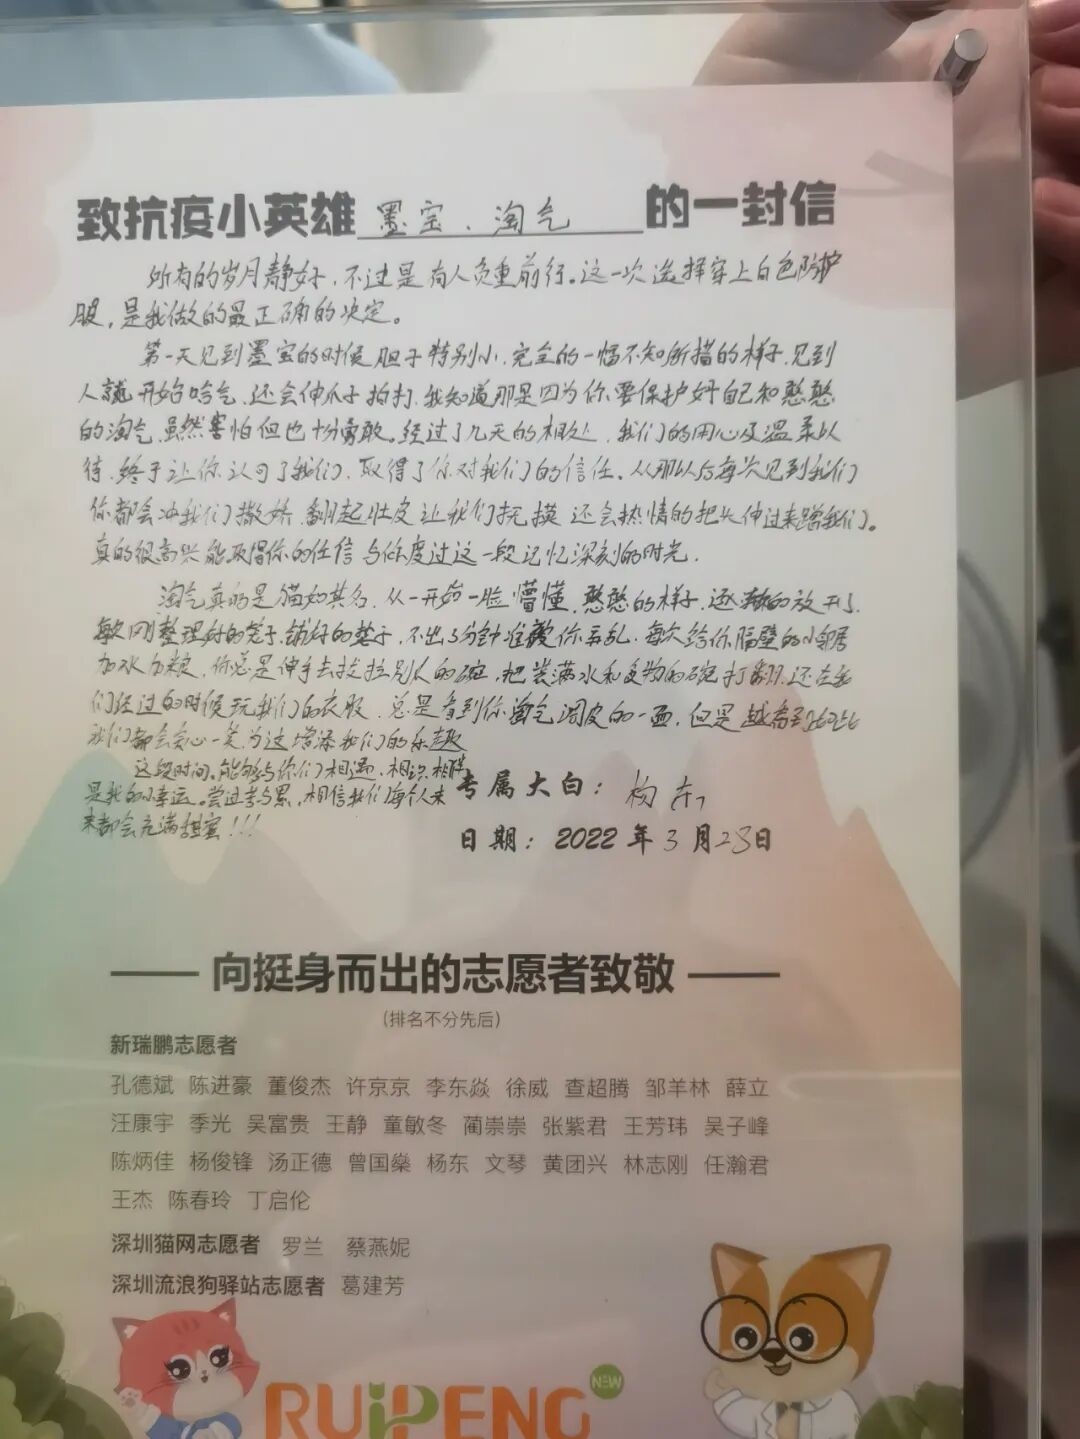 致抗疫小英雄 墨宝、淘气 的一封信
所有的岁月静好，不过是有人负重前行。这一次选择穿上白色防护
服，是我做的最正确的决定。
第一天见到墨宝的时候胆子特别小，完全的一幅不知所措的样子，见到
人就开始哈气，还会伸爪子拍打，我知道那是因为你要保护好自己和憨憨
的淘气，虽然害怕但也十分勇敢。经过了几天的相处，我们的用心及温柔以
待，终于让你认可了我们，取得了你对我们的信任。从那以后每次见到我们
你都会冲我们撒娇，翻起肚皮让我们抚摸，还会热情的把头伸过来蹭我们。
真的很高兴能取得你的任信与你度过这一段记忆深刻的时光。
淘气真的是猫如其名，从一开始一脸懵懂，憨憨的样子，逐渐的放开了。
每次刚整理好的笼子，铺好的垫子，不出5分钟准被你弄乱，每次给你隔壁的小邻居
加水加粮，你总是伸手去扒拉别人的碗，把装满水和食物的碗打翻，还在我
们经过的时候玩我们的衣服，总是看到你淘气调皮的一面，但是越看到
我们都会会心一笑，为这增添我们的乐趣
这段时间，能够与你们相遇，相识，相伴
是我的小幸运。尝过苦与累，相信我们每个人未
来都会充满甜蜜！！！
专属大白：杨东
日期：2022年3月28日
向挺身而出的志愿者致敬
(排名不分先后)
新瑞鹏志愿者
孔德斌 陈进豪 董俊杰 许京京 李东焱 徐威 查超腾 邹羊林 薛立
汪康宇 季光 吴富贵 王静 童敏冬 蔺崇崇 张紫君 王芳玮 吴子峰
陈炳佳 杨俊锋 汤正德 曾国燊 杨东 文琴 黄团兴 林志刚 任瀚君
王杰 陈春玲 丁启伦
深圳猫网志愿者 罗兰 蔡燕妮
深圳流浪狗驿站志愿者 葛建芳
NEW
RUIPENG